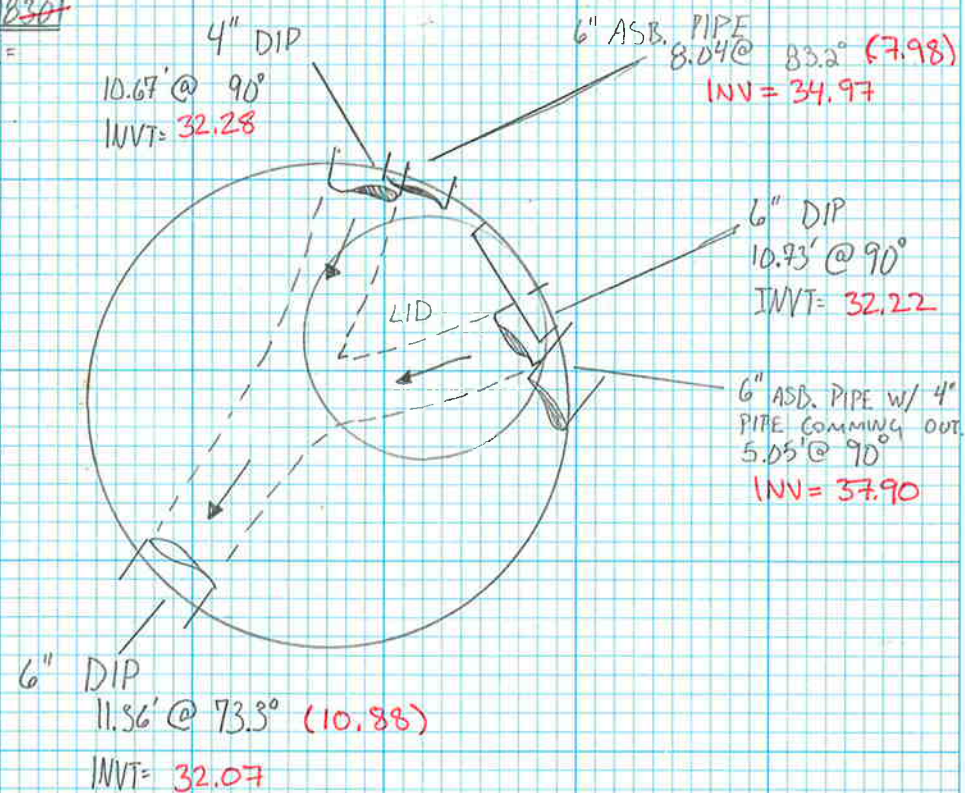 4" DIP
10.67' @ 90°
INVT= 32.28
6" ASB. PIPE
8.04@ 83.2° (7.98)
INV = 34.97
6" DIP
10.73' @ 90°
INVT= 32.22
LID
6" ASB. PIPE W/ 4"
PIPE COMMING OUT.
5.05' @ 90°
INV= 37.90
6" DIP
11.36' @ 73.3° (10.88)
INVT= 32.07